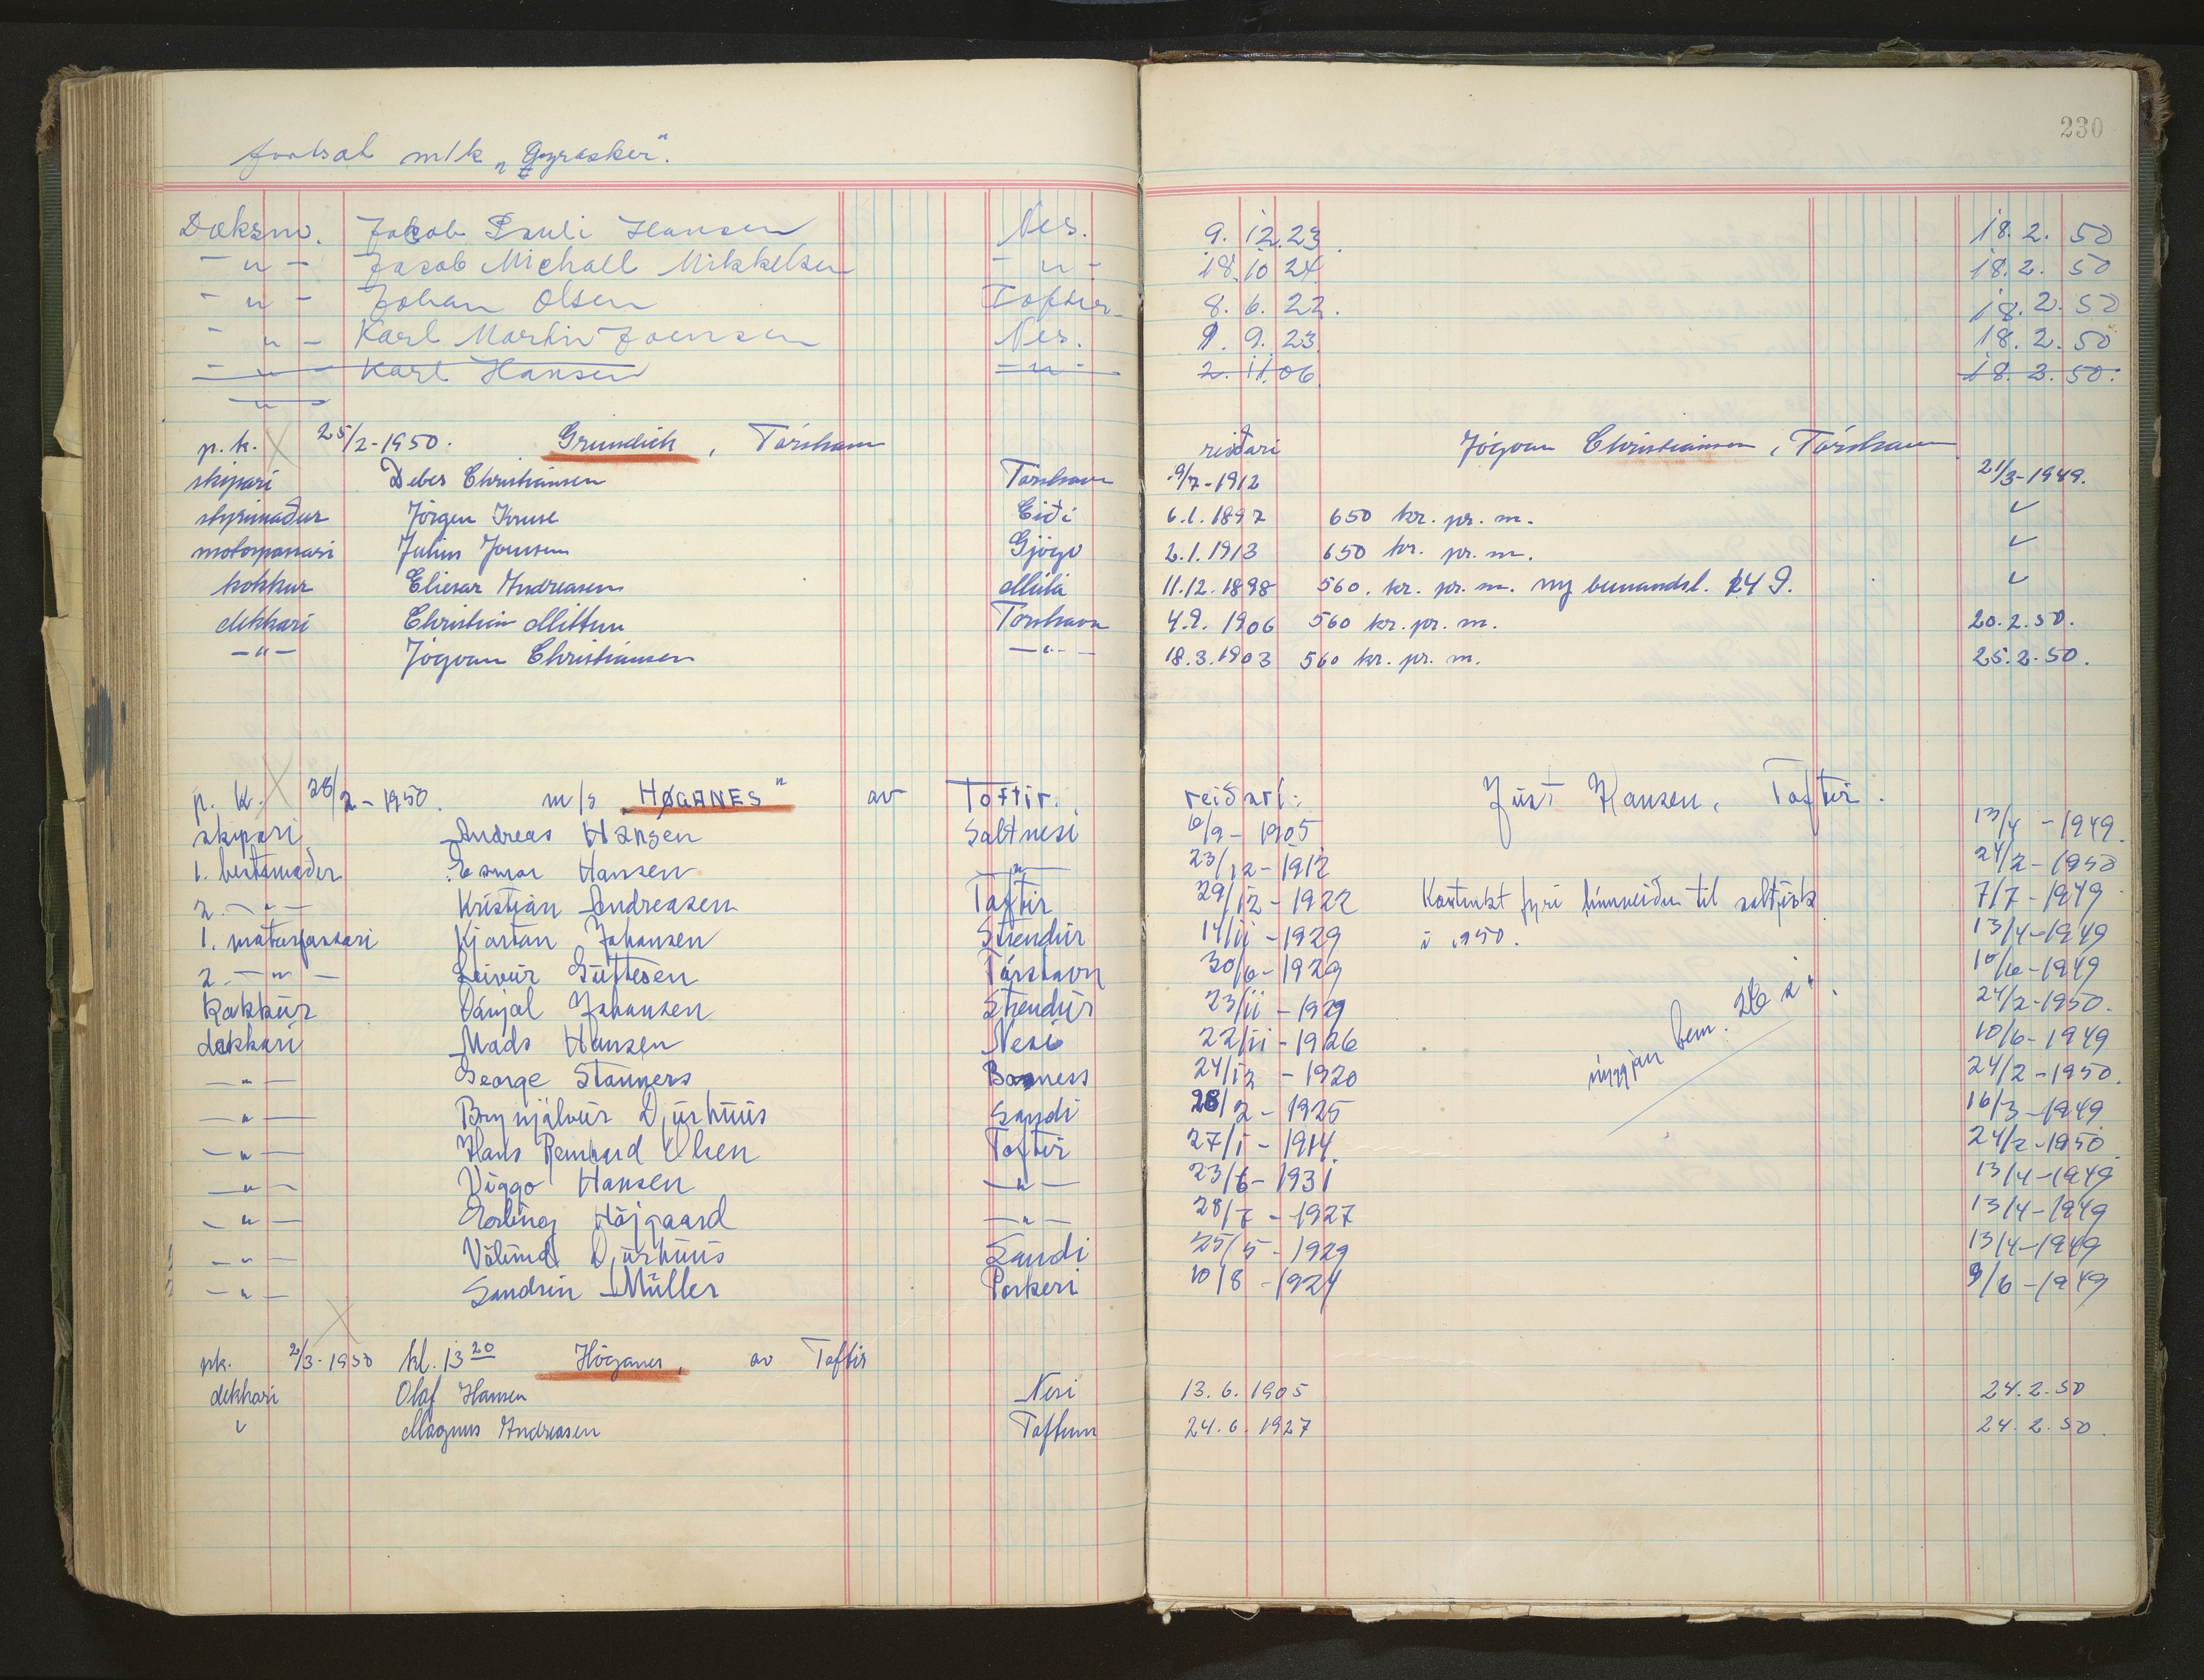 230
m/k „Gyrasker".
Daksm. Jakob Pauli Hansen Nes. 9. 12. 23. 18. 2. 50
– " – Jacob Michall Mikkelsen – " – 18. 10 24 18. 2. 50
– " – Johan Olsen Toftir 8. 6. 22. 18. 2. 50
– " – Karl Martin Joensen Nes. 9. 9. 23 18. 2. 50
– " – Karl Hansen – " – 2. 11. 06 18. 2. 50.
– " –
p. k. 25/2-1950. Grundick, Tórshavn reiðari Jógvan Christiansen, Tórshavn
skipari Debes Christiansen Tórshavn 9/7-1912 21/3-1949.
stýrimaður Jörgen Kruse Eiði 6.1.1897 650 kr. pr. m. "
motorpassari Julius Joensen Gjógv 2.1.1913 650 kr. pr. m. "
kokkur Eliesar Andreasen Múla 11.12.1898 560. kr. pr. m. ny bemandsl. "
dekkari Christian Mitten Tórshavn 4.9. 1906 560 kr. pr. m. 20.2.50.
– " – Jógvan Christiansen – " – 18.3.1903 560 kr. pr. m. 25.2.50.
p. k. 28/2-1950. m/s „HØGANES" av Toftir. reiðari: Júst Hansen, Toftir.
skipari Andreas Hansen Saltnesi 6/9-1905 13/4-1949.
1. bestumaður Esmar Hansen – " – 23/12-1912 24/2-1950
2. – " – Kristian Andreasen Toftir 29/12-1922 Kontrakt fyri línuveiðu til saltfisk 7/7-1949
1. motorpassari Kjartan Johansen Strendur 14/11-1929 í 1950. 13/4-1949
2. – " – Leivur Guttesen Tórshavn 30/6-1929 10/6-1949
Kokkur Dánjal Johansen Strendur 23/11-1929 24/2-1950.
dekkari Mads Hansen Nesi 22/11-1926 nýggjan bem. 10/6-1949
– " – George Stanners Boness 24/12-1920 24/2-1950.
– " – Brynjálvur Djurhuus Sandi 28/2-1925 16/3-1949
– " – Hans Reinhard Olsen Toftir 27/1-1914. 24/2-1950.
– " – Viggo Hansen – " – 23/6-1931 13/4-1949
– " – Erling Højgaard – " – 28/7-1927 13/4-1949
– " – Vølund Djurhuus Sandi 25/5-1929 13/4-1949
– " – Sandrin Müller Porkeri 10/8-1924 9/6-1949
pk. 2/3-1950 kl. 13 20 Höganes, av Toftir
dekkari Olaf Hansen Nesi 13.6.1905 24.2.50
" Magnus Andreasen Toftum 24.6.1927 24.2.50.